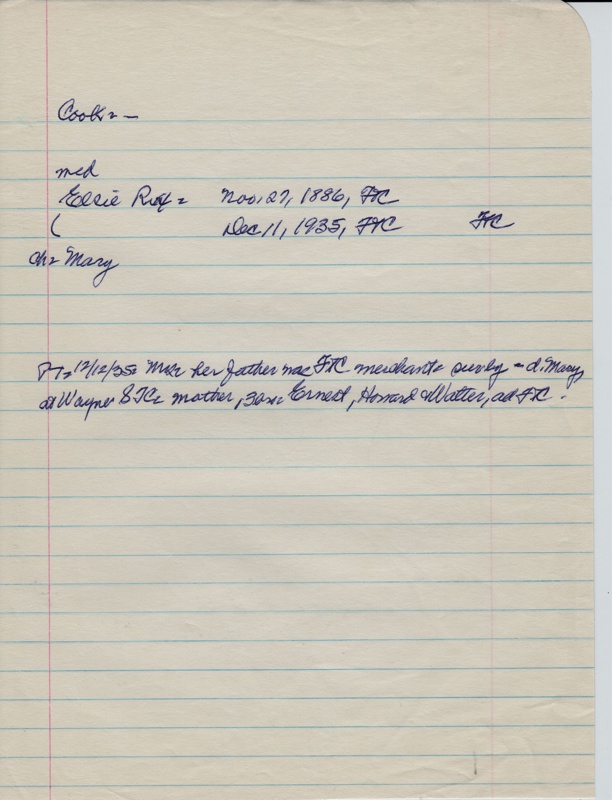 Cook = —
med
Elsie Ruf = Nov. 27, 1886, FTC
( Dec 11, 1935, FTC FTC
ch = Mary
PT = 12/12/35 = her father was FTC merchant = surv by = d. Mary,
at Wayne STC = mother, 3 bro = Ernest, Howard & Walter, all FTC.